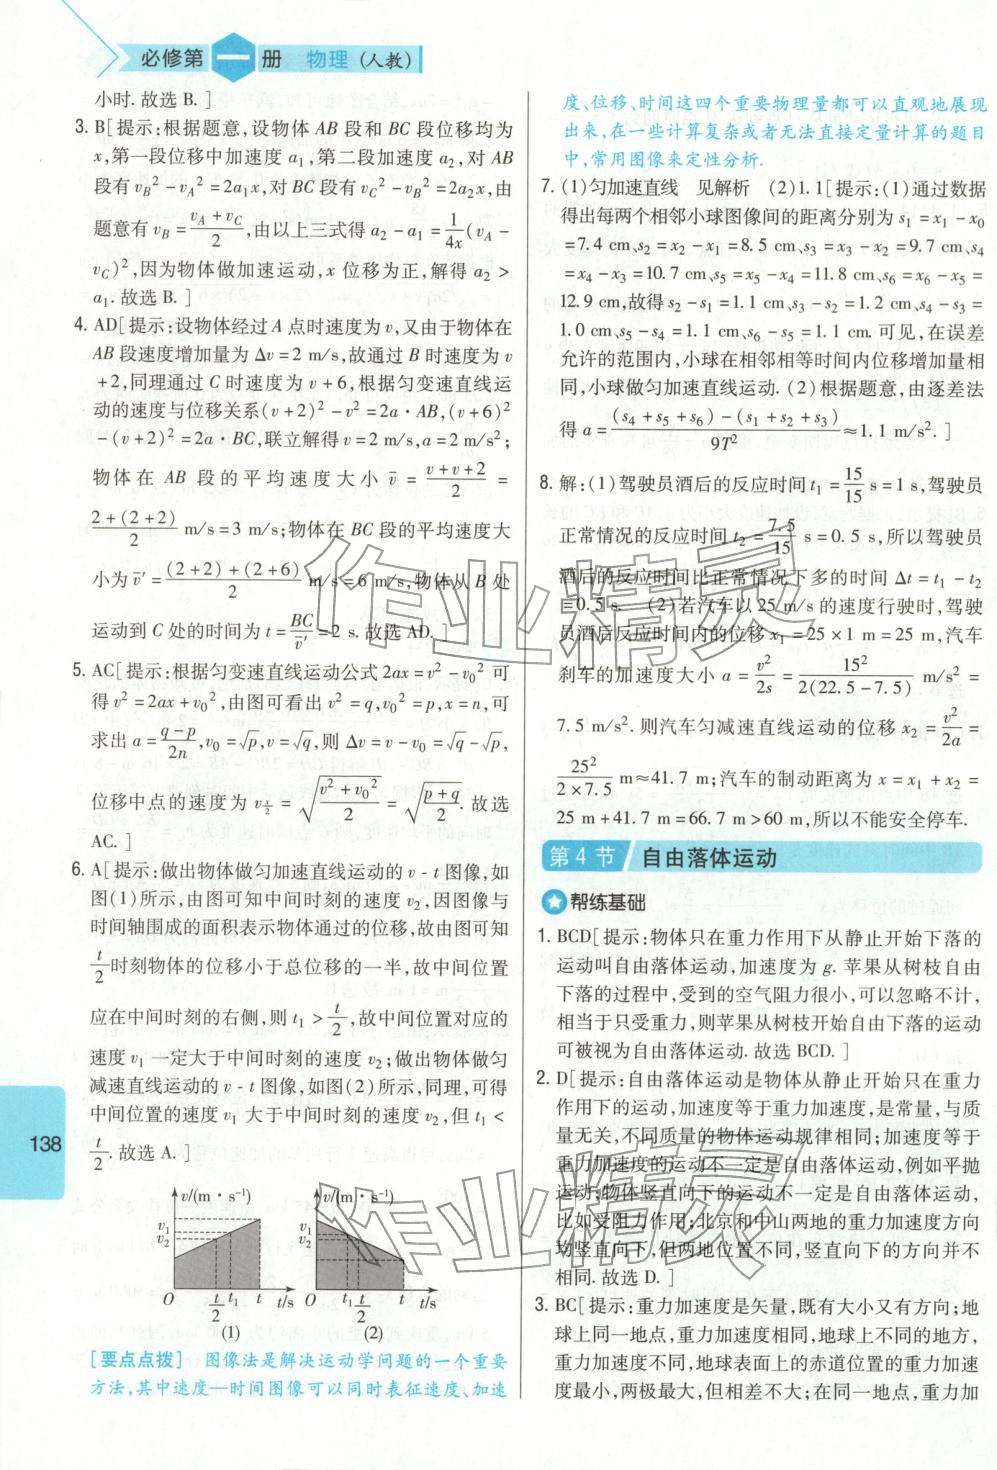 必修第一册 物理(人教)
小时.故选 B. ]
3. B[提示:根据题意,设物体 AB 段和 BC 段位移均为
x,第一段位移中加速度 a₁,第二段加速度 a₂,对 AB
段有 v_B²-v_A²=2a₁x,对 BC 段有 v_C²-v_B²=2a₂x,由
题意有 v_B=(v_A+v_C)/2,由以上三式得 a₂-a₁=1/(4x)(v_A-
v_C)²,因为物体做加速运动,x 位移为正,解得 a₂>
a₁.故选 B. ]
4. AD[提示:设物体经过 A 点时速度为 v,又由于物体在
AB 段速度增加量为 Δv=2 m/s,故通过 B 时速度为 v
+2,同理通过 C 时速度为 v+6,根据匀变速直线运
动的速度与位移关系(v+2)²-v²=2a·AB,(v+6)²
-(v+2)²=2a·BC,联立解得 v=2 m/s,a=2 m/s²;
物体在 AB 段的平均速度大小 v̄=(v+v+2)/2=
(2+(2+2))/2 m/s=3 m/s;物体在 BC 段的平均速度大
小为 v̄′=((2+2)+(2+6))/2 m/s=6 m/s,物体从 B 处
运动到 C 处的时间为 t=BC/v̄′=2 s.故选 AD. ]
5. AC[提示:根据匀变速直线运动公式 2ax=v²-v₀² 可
得 v²=2ax+v₀²,由图可看出 v²=q,v₀²=p,x=n,可
求出 a=(q-p)/2n,v₀=√p,v=√q,则 Δv=v-v₀=√q-√p,
位移中点的速度为 v_(x/2)=√((v²+v₀²)/2)=√((p+q)/2).故选
AC. ]
6. A[提示:做出物体做匀加速直线运动的 v-t 图像,如
图(1)所示,由图可知中间时刻的速度 v₂,因图像与
时间轴围成的面积表示物体通过的位移,故由图可知
t/2时刻物体的位移小于总位移的一半,故中间位置
应在中间时刻的右侧,则 t₁>t/2,故中间位置对应的
速度 v₁ 一定大于中间时刻的速度 v₂;做出物体做匀
减速直线运动的 v-t 图像,如图(2)所示,同理,可得
中间位置的速度 v₁ 大于中间时刻的速度 v₂,但 t₁<
t/2.故选 A. ]
v/(m·s⁻¹) v/(m·s⁻¹)
v₁ v₁
v₂ v₂
O t/2 t₁ t t/s O t₁ t/2 t t/s
(1) (2)
[要点点拨] 图像法是解决运动学问题的一个重要
方法,其中速度—时间图像可以同时表征速度、加速
度、位移、时间这四个重要物理量都可以直观地展现
出来,在一些计算复杂或者无法直接定量计算的题目
中,常用图像来定性分析.
7. (1)匀加速直线 见解析 (2)1.1[提示:(1)通过数据
得出每两个相邻小球图像间的距离分别为 s₁=x₁-x₀
=7.4 cm、s₂=x₂-x₁=8.5 cm、s₃=x₃-x₂=9.7 cm、s₄
=x₄-x₃=10.7 cm、s₅=x₅-x₄=11.8 cm、s₆=x₆-x₅=
12.9 cm,故得 s₂-s₁=1.1 cm、s₃-s₂=1.2 cm、s₄-s₃=
1.0 cm、s₅-s₄=1.1 cm、s₆-s₅=1.1 cm.可见,在误差
允许的范围内,小球在相邻相等时间内位移增加量相
同,小球做匀加速直线运动. (2)根据题意,由逐差法
得 a=((s₄+s₅+s₆)-(s₁+s₂+s₃))/9T²≈1.1 m/s². ]
8. 解:(1)驾驶员酒后的反应时间 t₁=15/15 s=1 s,驾驶员
正常情况的反应时间 t₂=7.5/15 s=0.5 s,所以驾驶员
酒后的反应时间比正常情况下多的时间 Δt=t₁-t₂
=0.5 s. (2)若汽车以 25 m/s 的速度行驶时,驾驶
员酒后反应时间内的位移 x₁=25×1 m=25 m,汽车
刹车的加速度大小 a=v²/2s=15²/(2(22.5-7.5)) m/s²=
7.5 m/s².则汽车匀减速直线运动的位移 x₂=v²/2a=
25²/(2×7.5) m≈41.7 m;汽车的制动距离为 x=x₁+x₂=
25 m+41.7 m=66.7 m>60 m,所以不能安全停车.
第 4 节 自由落体运动
帮练基础
1. BCD[提示:物体只在重力作用下从静止开始下落的
运动叫自由落体运动,加速度为 g.苹果从树枝自由
下落的过程中,受到的空气阻力很小,可以忽略不计,
相当于只受重力,则苹果从树枝开始自由下落的运动
可被视为自由落体运动.故选 BCD. ]
2. D[提示:自由落体运动是物体从静止开始只在重力
作用下的运动,加速度等于重力加速度,是常量,与质
量无关,不同质量的物体运动规律相同;加速度等于
重力加速度的运动不一定是自由落体运动,例如平抛
运动;物体竖直向下的运动不一定是自由落体运动,
比如受阻力作用;北京和中山两地的重力加速度方向
均竖直向下,但两地位置不同,竖直向下的方向并不
相同.故选 D. ]
3. BC[提示:重力加速度是矢量,既有大小又有方向;地
球上同一地点,重力加速度相同,地球上不同的地方,
重力加速度不同,地球表面上的赤道位置的重力加速
度最小,两极最大,但相差不大;在同一地点,重力加
138
作业精灵
作业精灵